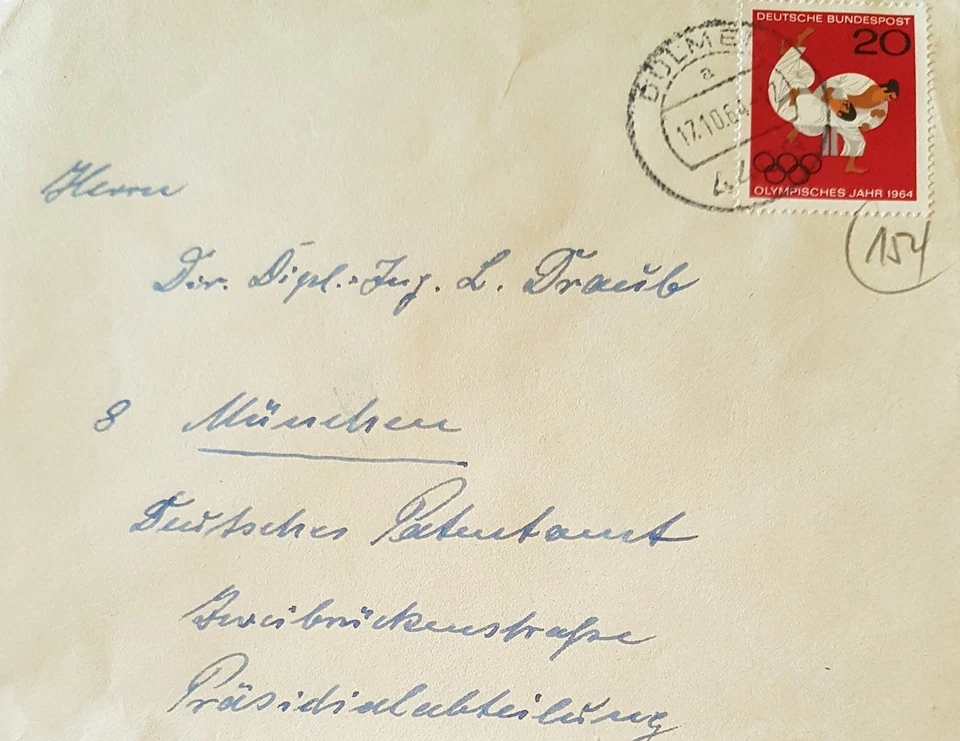 DEUTSCHE BUNDESPOST
20
DÜLMEN
a
17.10.64
44
OLYMPISCHES JAHR 1964
154
Herrn
Dir. Dipl.-Ing. L. Traub
8 München
Deutsches Patentamt
Zweibrückenstraße
Präsidialabteilung